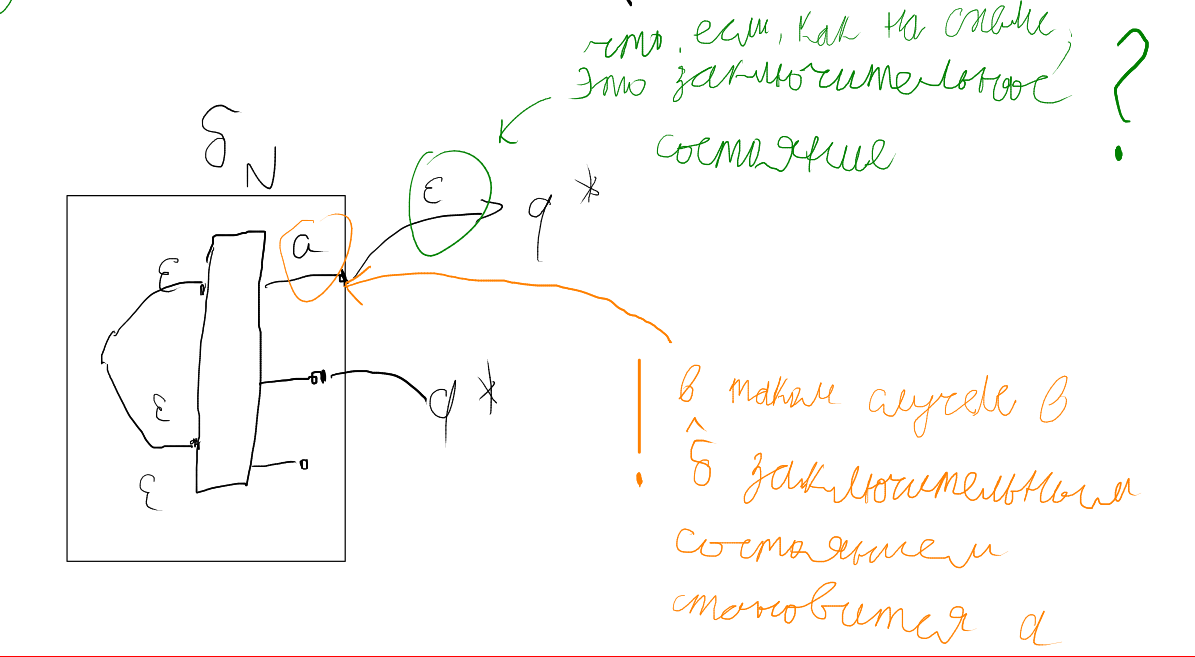 что, если, как на схеме,
это заключительное
состояние
?
δ
N
ε
q *
a
ε
q *
ε
ε
!
в таком случае в
δ̂ заключительным
состоянием
становится a